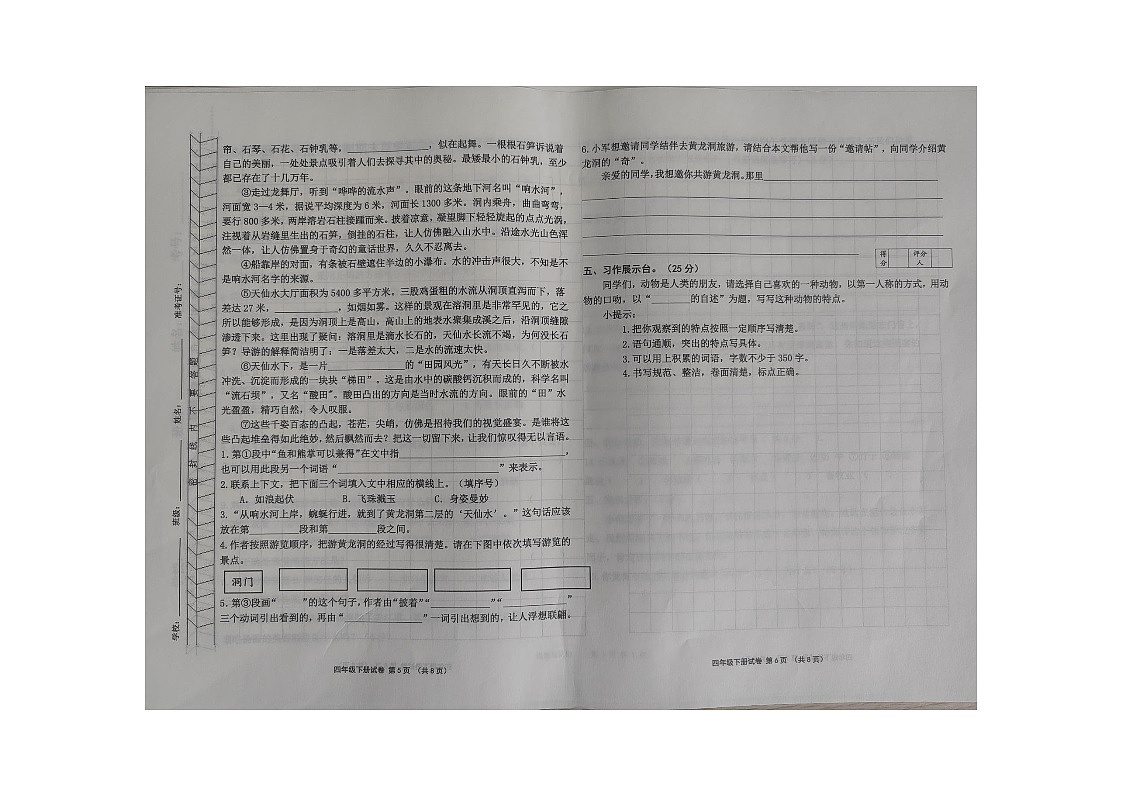 帘、石琴、石花、石钟乳等，________________，似在起舞。一根根石笋诉说着
自己的美丽，一处处景点吸引着人们去探寻其中的奥秘。最矮最小的石钟乳，至少
都已存在了十几万年。
③走过龙舞厅，听到“哗哗的流水声”。眼前的这条地下河名叫“响水河”，
河面宽 3—4 米，据说平均深度为 6 米，河面长 1300 多米。洞内乘舟，曲曲弯弯，
要行 800 多米，两岸溶岩石柱接踵而来。披着凉意，凝望脚下轻轻旋起的点点光涡，
注视着从岩缝里生出的石笋，倒挂的石柱，让人仿佛融入山水中。沿途水光山色浑
然一体，让人仿佛置身于奇幻的童话世界，久久不忍离去。
④船靠岸的对面，有条被石壁遮住半边的小瀑布。水的冲击声很大，不知是不
是响水河名字的来源。
⑤天仙水大厅面积为 5400 多平方米。三股鸡蛋粗的水流从洞顶直泻而下，落
差达 27 米，____________，如烟如雾。这样的景观在溶洞里是非常罕见的，它之
所以能够形成，是因为洞顶上是高山，高山上的地表水聚集成溪之后，沿洞顶缝隙
渗透下来。这里出现了疑问：溶洞里是滴水长石的，天仙水长流不竭，为何没长石
笋？导游的解释简洁明了：一是落差太大，二是水的流速太快。
⑥天仙水下，是一片______________的“田园风光”，有天长日久不断被水
冲洗、沉淀而形成的一块块“梯田”。这是由水中的碳酸钙沉积而成的，科学名叫
“流石坝”，又名“酸田”。酸田凸出的方向是当时水流的方向。眼前的“田”水
光盈盈，精巧自然，令人叹服。
⑦这些千姿百态的凸起，苍茫，尖峭，仿佛是招待我们的视觉盛宴。是谁将这
些凸起堆垒得如此绝妙，然后飘然而去？把这一切留下来，让我们惊叹得无以言语。
1. 第①段中“鱼和熊掌可以兼得”在文中指________________________________，
也可以用此段另一个词语“________________________________”来表示。
2. 联系上下文，把下面三个词填入文中相应的横线上。（填序号）
A．如浪起伏 B．飞珠溅玉 C．身姿曼妙
3. “从响水河上岸，蜿蜒行进，就到了黄龙洞第二层的‘天仙水’。”这句话应该
放在第__________段和第__________段之间。
4. 作者按照游览顺序，把游黄龙洞的经过写得很清楚。请在下图中依次填写游览的
景点。
洞门
5. 第③段画“ ”的这个句子，作者由“披着”“____________”“____________”
三个动词引出看到的，再由“________________”一词引出想到的，让人浮想联翩。
四年级下册试卷 第 5 页 （共 8 页）
6. 小军想邀请同学结伴去黄龙洞旅游，请结合本文帮他写一份“邀请帖”，向同学介绍黄
龙洞的“奇”。
亲爱的同学，我想邀你共游黄龙洞。那里________________________________
得分
评分人
五、习作展示台。（25 分）
同学们，动物是人类的朋友，请选择自己喜欢的一种动物，以第一人称的方式，用动
物的口吻，以“________的自述”为题，写写这种动物的特点。
小提示：
1. 把你观察到的特点按照一定顺序写清楚。
2. 语句通顺，突出的特点写具体。
3. 可以用上积累的词语，字数不少于 350 字。
4. 书写规范、整洁，卷面清楚，标点正确。
四年级下册试卷 第 6 页 （共 8 页）
学校：________ 班级：________ 姓名：________ 准考证号：________
密 封 线 内 不 要 答 题